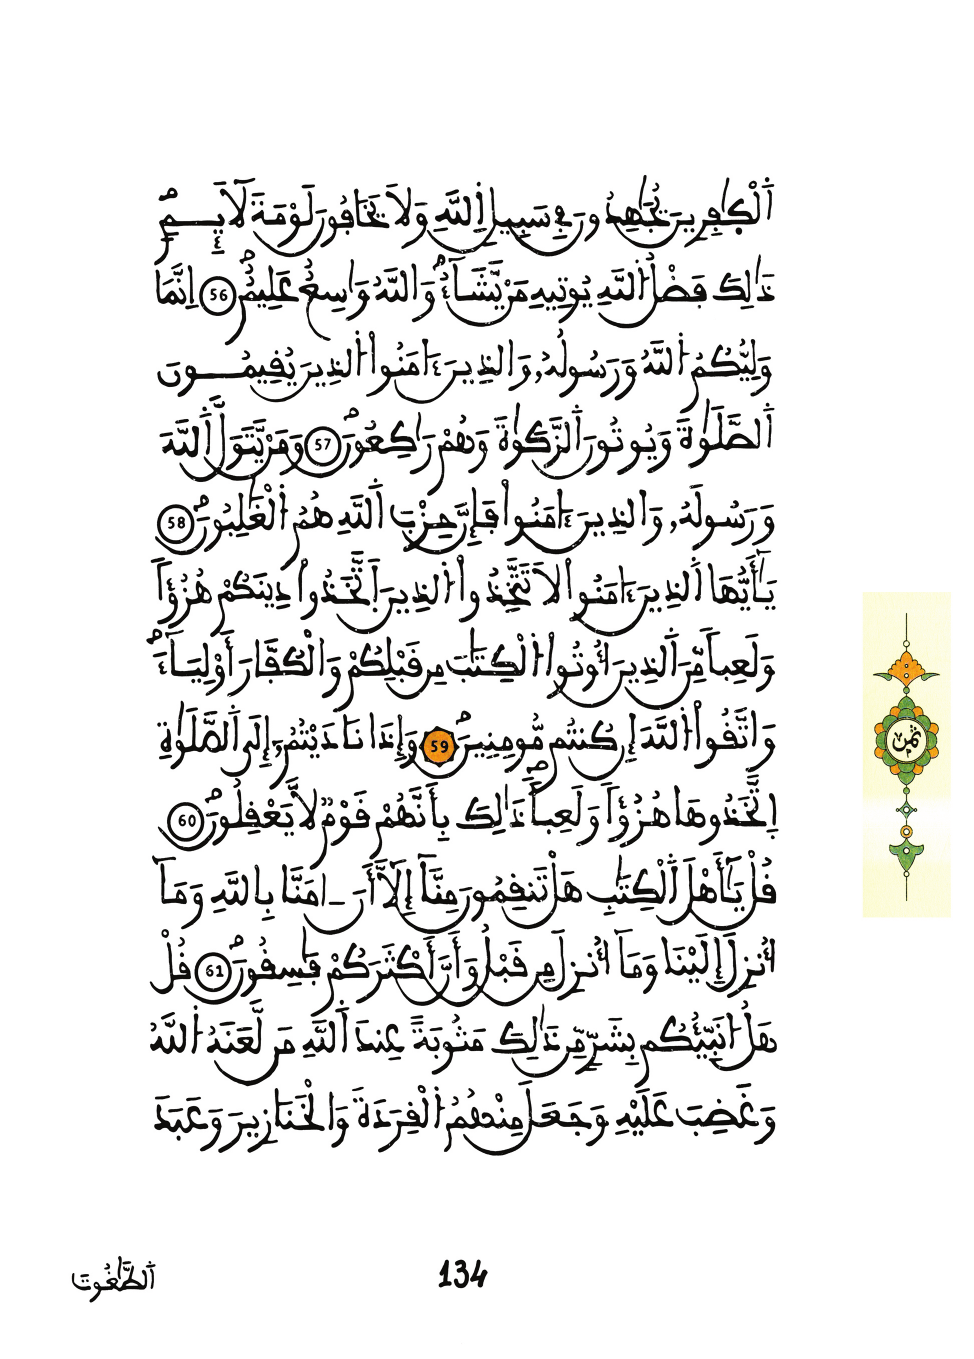 اَ۬لْكٰ۪فِرِينَ يُجَٰهِدُونَ فِے سَبِيلِ اِ۬للَّهِ وَلَا يَخَافُونَ لَوْمَةَ لَآئِمٖ
ذَٰلِكَ فَضْلُ اُ۬للَّهِ يُوتِيهِ مَنْ يَّشَآءُ وَاللَّهُ وَٰسِعٌ عَلِيمٌ 56 اِنَّمَا
وَلِيُّكُمُ اُ۬للَّهُ وَرَسُولُهُۥ وَالذِينَ ءَامَنُواْ اُ۬لذِينَ يُقِيمُونَ
اَ۬لصَّلَوٰةَ وَيُوتُونَ اَ۬لزَّكَوٰةَ وَهُمْ رَٰكِعُونَ 57 وَمَنْ يَّتَوَلَّ اَ۬للَّهَ
وَرَسُولَهُۥ وَالذِينَ ءَامَنُواْ فَإِنَّ حِزْبَ اَ۬للَّهِ هُمُ اُ۬لْغَٰلِبُونَ 58
يَٰٓأَيُّهَا اَ۬لذِينَ ءَامَنُواْ لَا تَتَّخِذُواْ اُ۬لذِينَ اَ۪تَّخَذُواْ دِينَكُمْ هُزُؤاٗ
وَلَعِباٗ مِّنَ اَ۬لذِينَ أُوتُواْ اُ۬لْكِتَٰبَ مِن قَبْلِكُمْ وَالْكُفَّارَ أَوْلِيَآءَ
وَاتَّقُواْ اُ۬للَّهَ إِن كُنتُم مُّومِنِينَ 59 وَإِذَا نَادَيْتُمُۥٓ إِلَي اَ۬لصَّلَوٰةِ
اِ۪تَّخَذُوهَا هُزُؤاٗ وَلَعِباٗ ذَٰلِكَ بِأَنَّهُمْ قَوْمٞ لَّا يَعْقِلُونَ 60
قُلْ يَٰٓأَهْلَ اَ۬لْكِتَٰبِ هَلْ تَنقِمُونَ مِنَّآ إِلَّآ أَنَ اٰمَنَّا بِاللَّهِ وَمَآ
أُنزِلَ إِلَيْنَا وَمَآ أُنزِلَ مِن قَبْلُ وَأَنَّ أَكْثَرَكُمْ فَٰسِقُونَ 61 قُلْ
هَلُ ا۟نَبِّئُكُم بِشَرّٖ مِّن ذَٰلِكَ مَثُوبَةً عِندَ اَ۬للَّهِ مَن لَّعَنَهُ اُ۬للَّهُ
وَغَضِبَ عَلَيْهِ وَجَعَلَ مِنْهُمُ اُ۬لْقِرَدَةَ وَالْخَنَازِيرَ وَعَبَدَ
ثمن
134
اَ۬لطَّٰغُوتَ